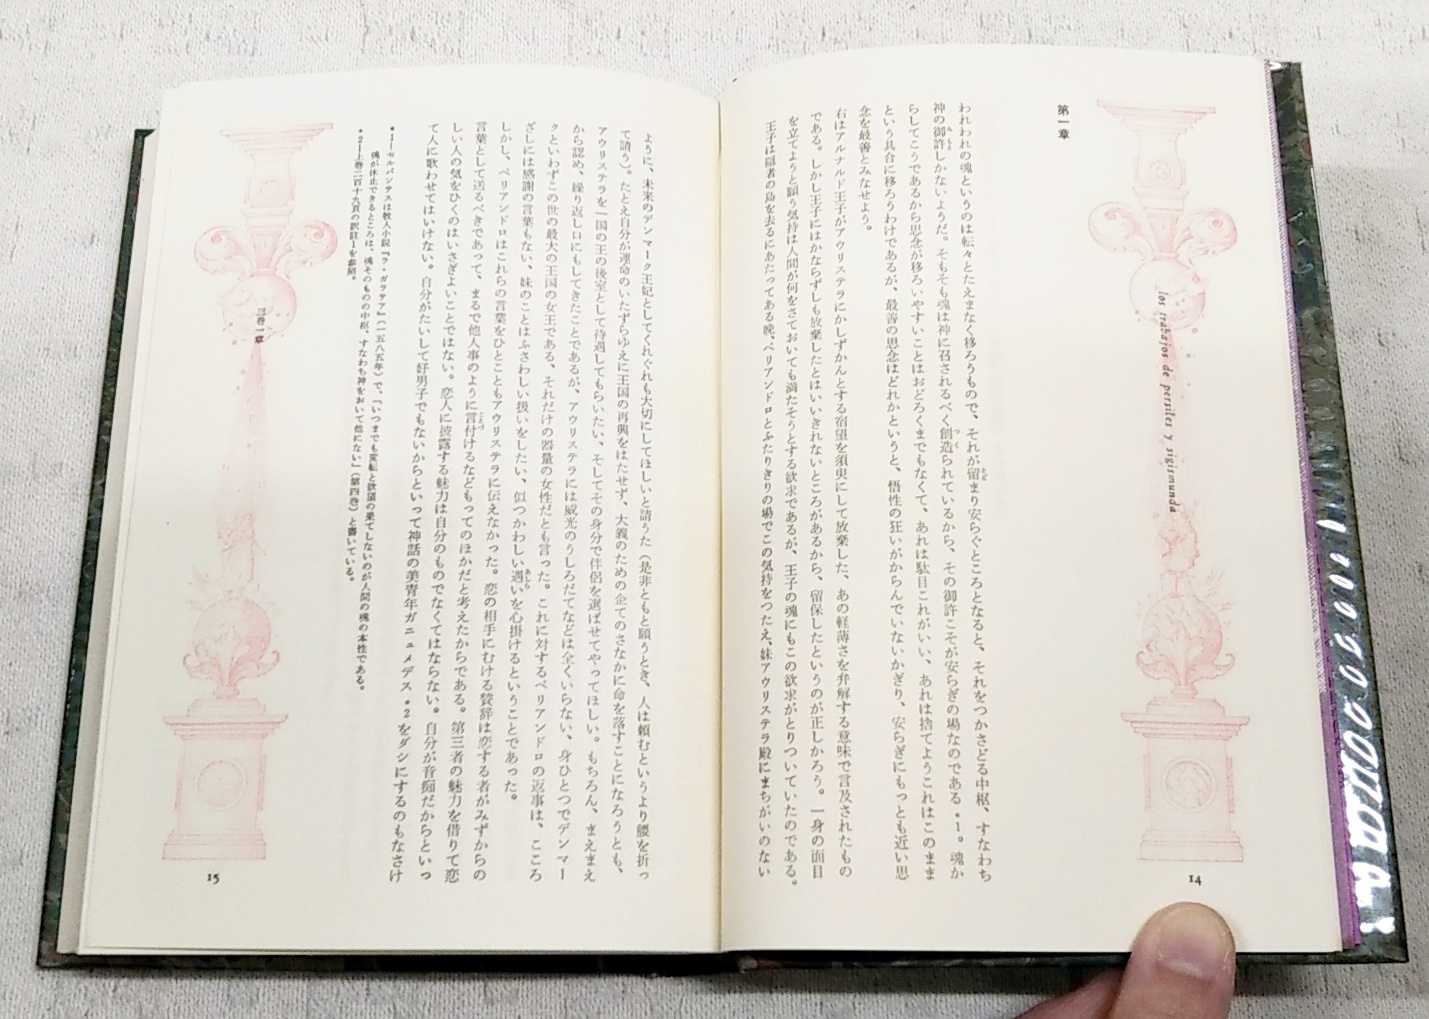 los trabajos de persiles y sigismunda
第一章
われわれの魂というのは転々とたえまなく移ろうもので、それが留まり安らぐところとなると、それをつかさどる中枢、すなわち
神の御許しかないようだ。そもそも魂は神に召されるべく創造られているから、その御許こそが安らぎの場なのである*1。魂か
らしてこうであるから思念が移ろいやすいことはおどろくまでもなくて、あれは駄目これがいい、あれは捨てようこれはこのまま
という具合に移ろうわけであるが、最善の思念はどれかというと、悟性の狂いがからんでいないかぎり、安らぎにもっとも近い思
念を最善とみなせよう。
右はアルナルド王子がアウリステラにかしずかんとする宿望を須臾にして放棄した、あの軽薄さを弁解する意味で言及されたもの
である。しかし王子にはかならずしも放棄したとはいいきれないところがあるから、留保したというのが正しかろう。一身の面目
を立てようと願う気持は人間が何をさておいても満たそうとする欲求であるが、王子の魂にもこの欲求がとりついていたのである。
王子は隠者の島を去るにあたってある晩、ペリアンドロとふたりきりの場でこの気持をつたえ、妹アウリステラ殿にまちがいのない
14
ように、未来のデンマーク王妃としてくれぐれも大切にしてほしいと請うた（是非もと願うとき、人は頼むというより腰を折っ
て請う）。たとえ自分が運命のいたずらゆえに王国の再興をはたせず、大義のための企てのさなかに命を落すことになろうとも、
アウリステラを一国の王の後室として待遇してもらいたい、そしてその身分で伴侶を選ばせてやってほしい。もちろん、まえまえ
から認め、繰り返し口にもしてきたことであるが、アウリステラには威光のうしろだてなどは全くいらない、身ひとつでデンマー
クといわずこの世の最大の王国の女王である、それだけの器量の女性だとも言った。これに対するペリアンドロの返事は、こころ
ざしには感謝の言葉もない、妹のことはふさわしい扱いをしたい、似つかわしい遇いを心掛けるということであった。
しかし、ペリアンドロはこれらの言葉をひとこともアウリステラに伝えなかった。恋の相手にむける賛辞は恋する者がみずからの
言葉として送るべきであって、まるで他人事のように言付けるなどもってのほかだと考えたからである。第三者の魅力を借りて恋
しい人の気をひくのはいさぎよいことではない。恋人に披露する魅力は自分のものでなくてはならない。自分が音痴だからといっ
て人に歌わせてはいけない。自分がたいして好男子でもないからといって神話の美青年ガニュメデス*2をダシにするのもなさけ
*1—セルバンテスは牧人小説『ラ・ガラテア』（一五八五年）で、「いつまでも変転と欲望の果てしないのが人間の魂の本性である。
魂が休止できるところは、魂そのものの中枢、すなわち神をおいて他にない」（第四巻）と書いている。
*2—上巻二百十九頁の訳註1を参照。
三巻一章
15